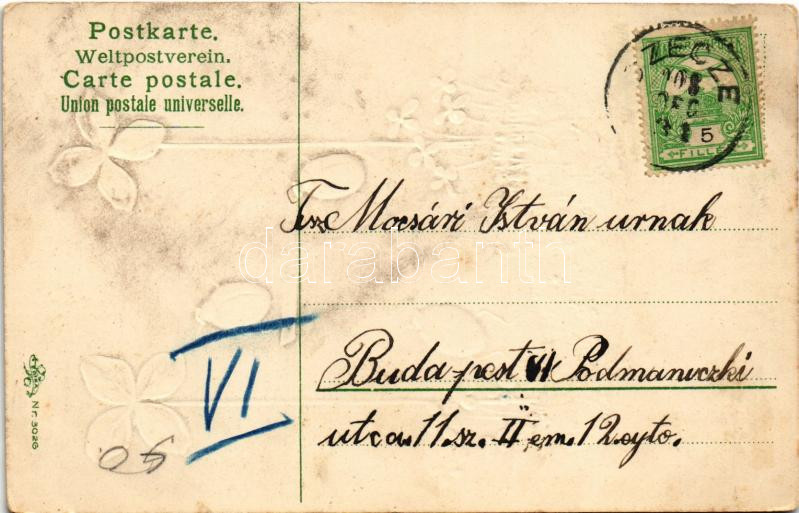 Postkarte.
Weltpostverein.
Carte postale.
Union postale universelle.
ZECZE
908
DEC
31
5
FILLÉR
Tsz Mocsári István urnak
darabanth
Budapest VI Podmaniczki
utca. 11. sz. II em. 12 ayto.
VI
90
Nr. 3026